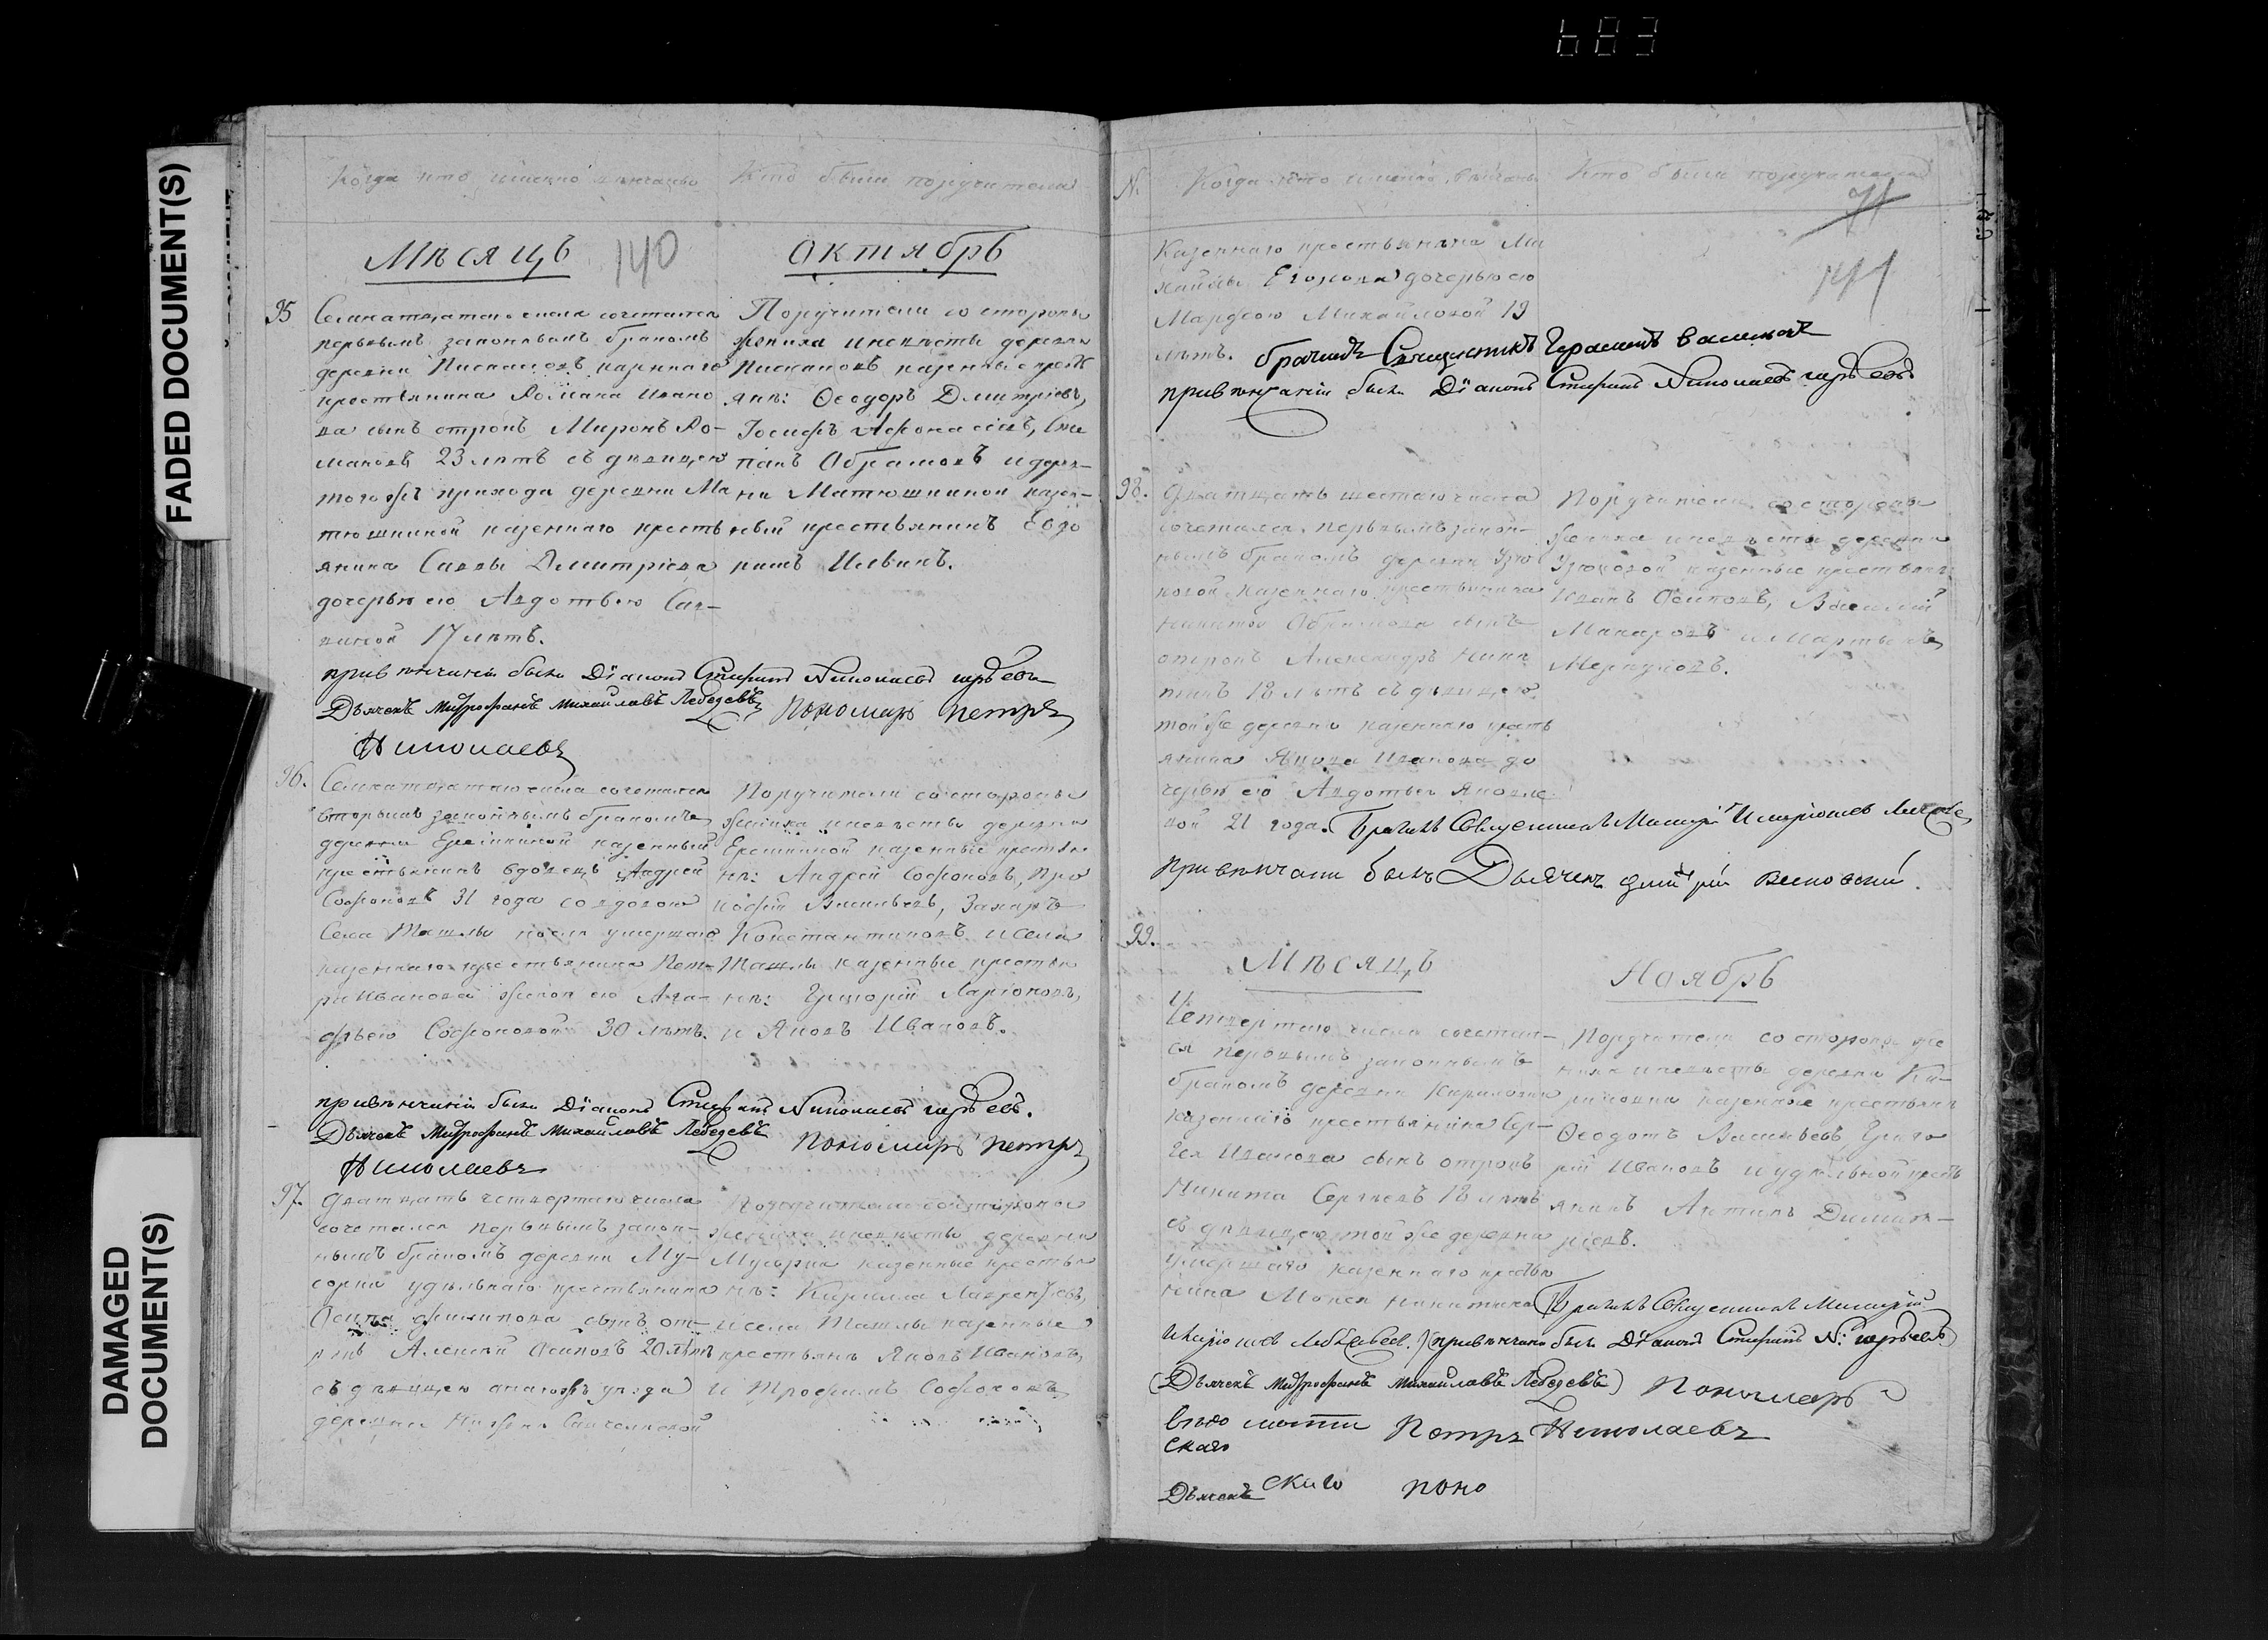 683
FADED DOCUMENT(S)
DAMAGED
DOCUMENT(S)
Когда кто именно вѣнчанъ
Кто были поручители
Мѣсяцъ 140
Октябрь
95
Семнатцатаго числа сочетался
первымъ законнымъ бракомъ
деревни казеннаго
крестьянина Романа Ивано
ва сынъ отрокъ Миронъ Ро-
мановъ 23 лѣтъ съ дѣвицею
того жъ прихода деревни Ма
тюшкиной казеннаго кресть
янина Саввы Дмитріева
дочерью ею Авдотьею Сав-
виной 17 лѣтъ.
Поручители со стороны
жениха и невѣсты деревни
казенные крест
янѣ: Ѳеодоръ Дмитріевъ,
Іосифъ Афонасіевъ, Сте
панъ Абрамовъ и дерев-
ни Матюшкиной казен-
ный крестьянинъ Евдо
кимъ Ильинъ.
при вѣнчаніи были Діаконъ Стефанъ Николаевъ
Дьячекъ Митрофанъ Михайловъ Лебедевъ Пономарь Петръ
Николаевъ
96.
Семнатцатаго числа сочетался
вторымъ законнымъ бракомъ
деревни Ерешкиной казенный
крестьянинъ вдовецъ Андрей
Софоновъ 31 года со вдовою
Села Ташлы послѣ умершаго
казеннаго крестьянина Пет-
ра Иванова женой ею Ага-
фьею Софоновой 30 лѣтъ.
Поручители со стороны
жениха и невѣсты деревни
Ерешкиной казенные крестья
нѣ: Андрей Софоновъ, Про
кофій Васильевъ, Захаръ
Константиновъ и села
Ташлы казенные крестья
нѣ: Григорій Ларіоновъ,
и Яковъ Ивановъ.
при вѣнчаніи были Діаконъ Стефанъ Николаевъ
Дьячекъ Митрофанъ Михайловъ Лебедевъ Пономарь Петръ
Николаевъ
97.
Дватцать четвертаго числа
сочетался первымъ закон-
нымъ бракомъ деревни Му-
сорки удѣльнаго крестьянина
Осипа Филипова сынъ от-
рокъ Алексѣй Осиповъ 20 лѣтъ
съ дѣвицею онаго жъ уѣзда
деревни Нижней
Поручители со стороны
жениха и невѣсты деревни
Мусорки казенные крестья
нѣ: Кирилла Лаврентьевъ,
и села Ташлы казенные
крестьянѣ Яковъ Ивановъ,
и Трофимъ Софоновъ
№
Когда кто именно вѣнчанъ
Кто были поручители
71
141
Казеннаго крестьянина Ми
хайлы дочерью ею
Марфою Михайловой 19
лѣтъ. брачилъ Священникъ Герасимъ Васильевъ
при вѣнчаніи были Діаконъ Стефанъ Николаевъ
98.
Дватцать шестаго числа
сочетался первымъ закон-
нымъ бракомъ деревни Узю
ковой казеннаго крестьянина
Никиты Абрамова сынъ
отрокъ Александръ Ники
тинъ 18 лѣтъ съ дѣвицею
той же деревни казеннаго кресть
янина Якова Иванова до
черью ею Авдотьей Яковле
вой 21 года. Бракилъ Священникъ
Поручители со стороны
жениха и невѣсты деревни
Узюковой казенные крестьянѣ
Иванъ Осиповъ, Василій
Макаровъ и Мартынъ
Меркуловъ.
при вѣнчаніи былъ Дьячекъ
99.
Мѣсяцъ
Ноябрь
Четвертаго числа сочетал-
ся первымъ законнымъ
бракомъ деревни Кириловки
казеннаго крестьянина Сер-
гея Иванова сынъ отрокъ
Никита Сергѣевъ 18 лѣтъ
съ дѣвицею той же деревни
умершаго казеннаго крестья
нина Никитина
Поручители со стороны же
ниха и невѣсты деревни Ки-
риловки казенные крестьянѣ
Ѳеодотъ Васильевъ, Григо
рій Ивановъ и удѣльной кресть
янинъ Антипъ Димит-
ріевъ.
при вѣнчаніи былъ Діаконъ Стефанъ Н:
(Дьячекъ Митрофанъ Михайловъ Лебедевъ) Пономарь
Петръ Николаевъ
скаго
Дьячекъ скаго поно